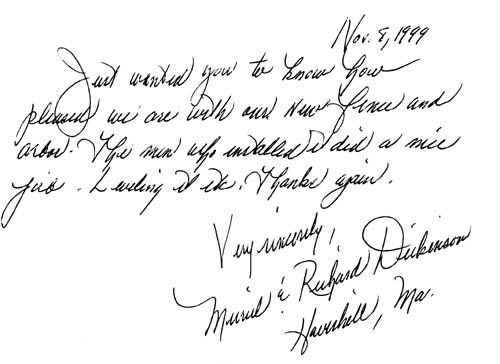 Nov. 8, 1999
Just wanted you to know how
pleased we are with our new fence and
arbor. The men who installed it did a nice
job. Leveling it etc. Thanks again.
Very sincerely,
Muriel & Richard Dickinson
Haverhill, Ma.